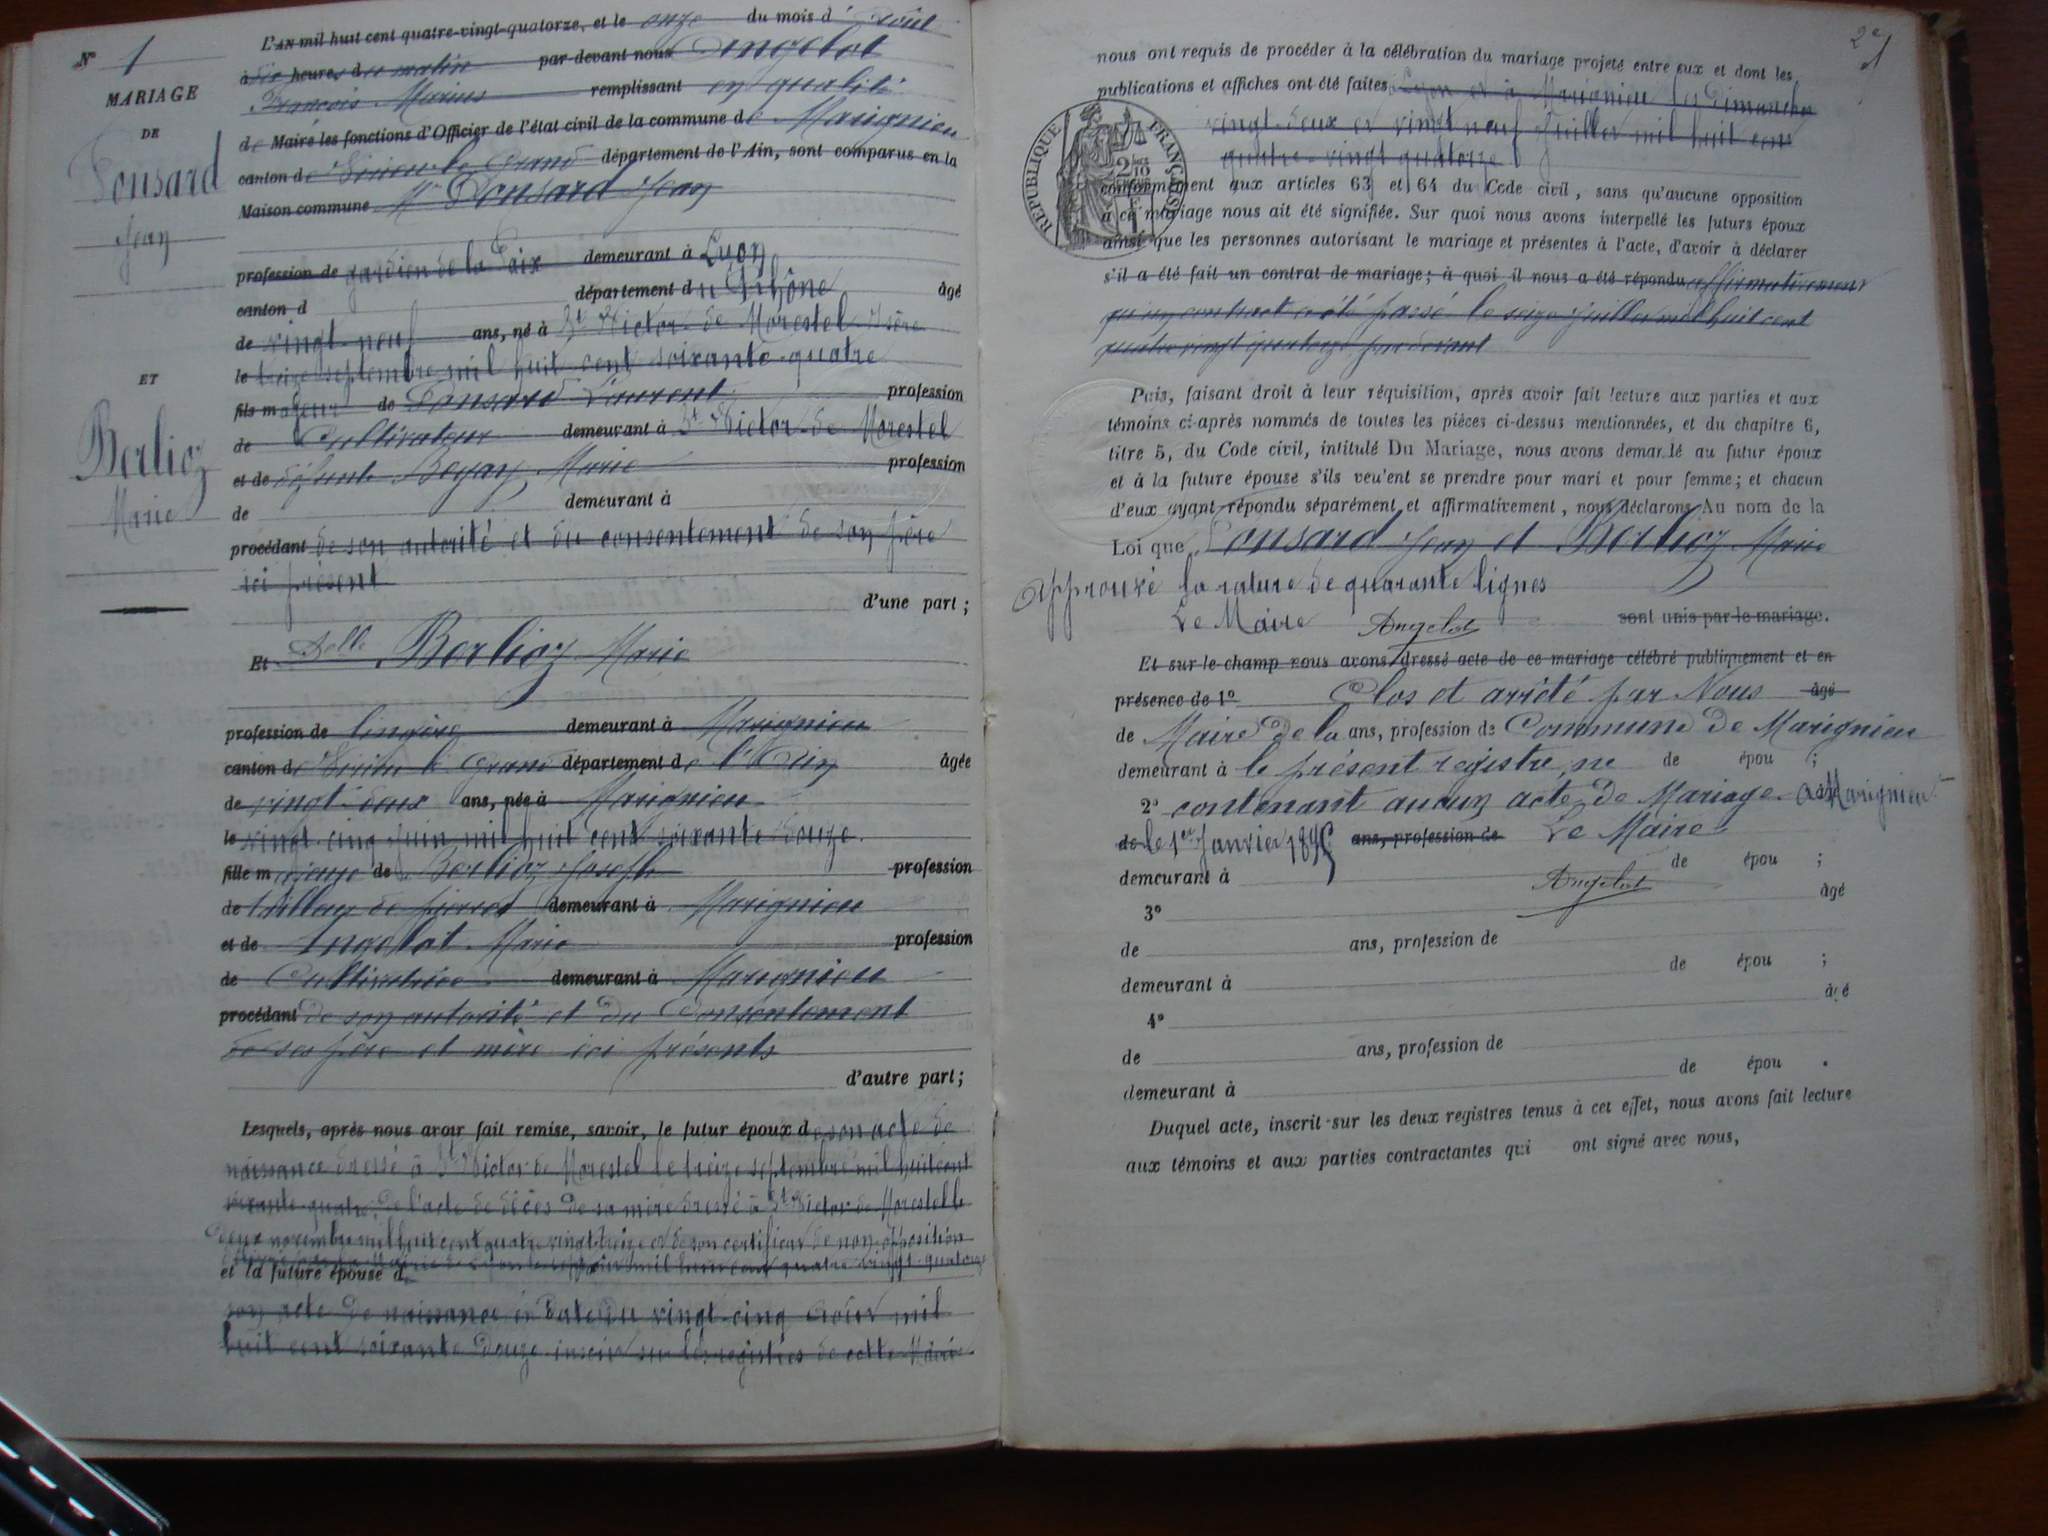 N° 1
MARIAGE
DE
Ponsard
Jean
ET
Berlioz
Marie
L'AN mil huit cent quatre-vingt-quatorze, et le onze du mois d' Août
à dix heures du matin par-devant nous Angelot
François Marius remplissant en qualité
de Maire les fonctions d'Officier de l'état civil de la commune de Marignieu
canton de Virieu le Grand département de l'Ain, sont comparus en la
Maison commune Mr Ponsard Jean
profession de gardien de la Paix demeurant à Lyon
canton d département du Rhône âgé
de vingt-neuf ans, né à St Victor de Morestel Isère
le treize septembre mil huit cent soixante-quatre
fils majeur de Ponsard Laurent profession
de Cultivateur demeurant à St Victor de Morestel
et de défunte Marie profession
de demeurant à
procédant de son autorité et du consentement de son père
ici présent
d'une part ;
Et Delle Berlioz Marie
profession de lingère demeurant à Marignieu
canton de Virieu le Grand département de l'Ain âgée
de vingt-deux ans, née à Marignieu
le vingt-cinq juin mil huit cent soixante douze.
fille majeure de Berlioz Joseph profession
de tailleur de pierres demeurant à Marignieu
et de Angelot Marie profession
de Cultivatrice demeurant à Marignieu
procédant de son autorité et du Consentement
de ses père et mère ici présents
d'autre part ;
Lesquels, après nous avoir fait remise, savoir, le futur époux de son acte de
naissance dressé à St Victor de Morestel le treize septembre mil huit cent
soixante-quatre, de l'acte de décès de sa mère dressé à St Victor de Morestel le
deux novembre mil huit cent quatre vingt-treize et de son certificat de non opposition
mil huit cent quatre-vingt-quatorze
et la future épouse d
son acte de naissance en date du vingt-cinq mil
huit cent soixante douze inscrit sur les registres de cette Mairie
2e
nous ont requis de procéder à la célébration du mariage projeté entre eux et dont les
publications et affiches ont été faites à Lyon et à Marignieu les Dimanches
vingt-deux et vingt neuf Juillet mil huit cent
quatre-vingt quatorze
RÉPUBLIQUE FRANÇAISE
conformément aux articles 63 et 64 du Code civil, sans qu'aucune opposition
à ce mariage nous ait été signifiée. Sur quoi nous avons interpellé les futurs époux
ainsi que les personnes autorisant le mariage et présentes à l'acte, d'avoir à déclarer
s'il a été fait un contrat de mariage ; à quoi il nous a été répondu affirmativement
qu'un contrat a été passé le seize Juillet mil huit cent
quatre vingt quatorze par devant
Puis, faisant droit à leur réquisition, après avoir fait lecture aux parties et aux
témoins ci-après nommés de toutes les pièces ci-dessus mentionnées, et du chapitre 6,
titre 5, du Code civil, intitulé Du Mariage, nous avons demandé au futur époux
et à la future épouse s'ils veulent se prendre pour mari et pour femme ; et chacun
d'eux ayant répondu séparément et affirmativement, nous déclarons Au nom de la
Loi que Ponsard Jean et Berlioz Marie
Approuvé la rature de quarante lignes
Le Maire Angelot sont unis par le mariage.
Et sur-le-champ nous avons dressé acte de ce mariage célébré publiquement et en
présence de 1° Clos et arrêté par Nous âgé
de Maire de la ans, profession de Commune de Marignieu
demeurant à le présent registre, ne de épou ;
2° contenant aucun acte de Mariage. A Marignieu
de le 1er Janvier 1895 ans, profession de Le Maire
demeurant à de épou ;
Angelot
3° âgé
de ans, profession de
demeurant à de épou ;
4° âgé
de ans, profession de
demeurant à de épou .
Duquel acte, inscrit sur les deux registres tenus à cet effet, nous avons fait lecture
aux témoins et aux parties contractantes qui ont signé avec nous,